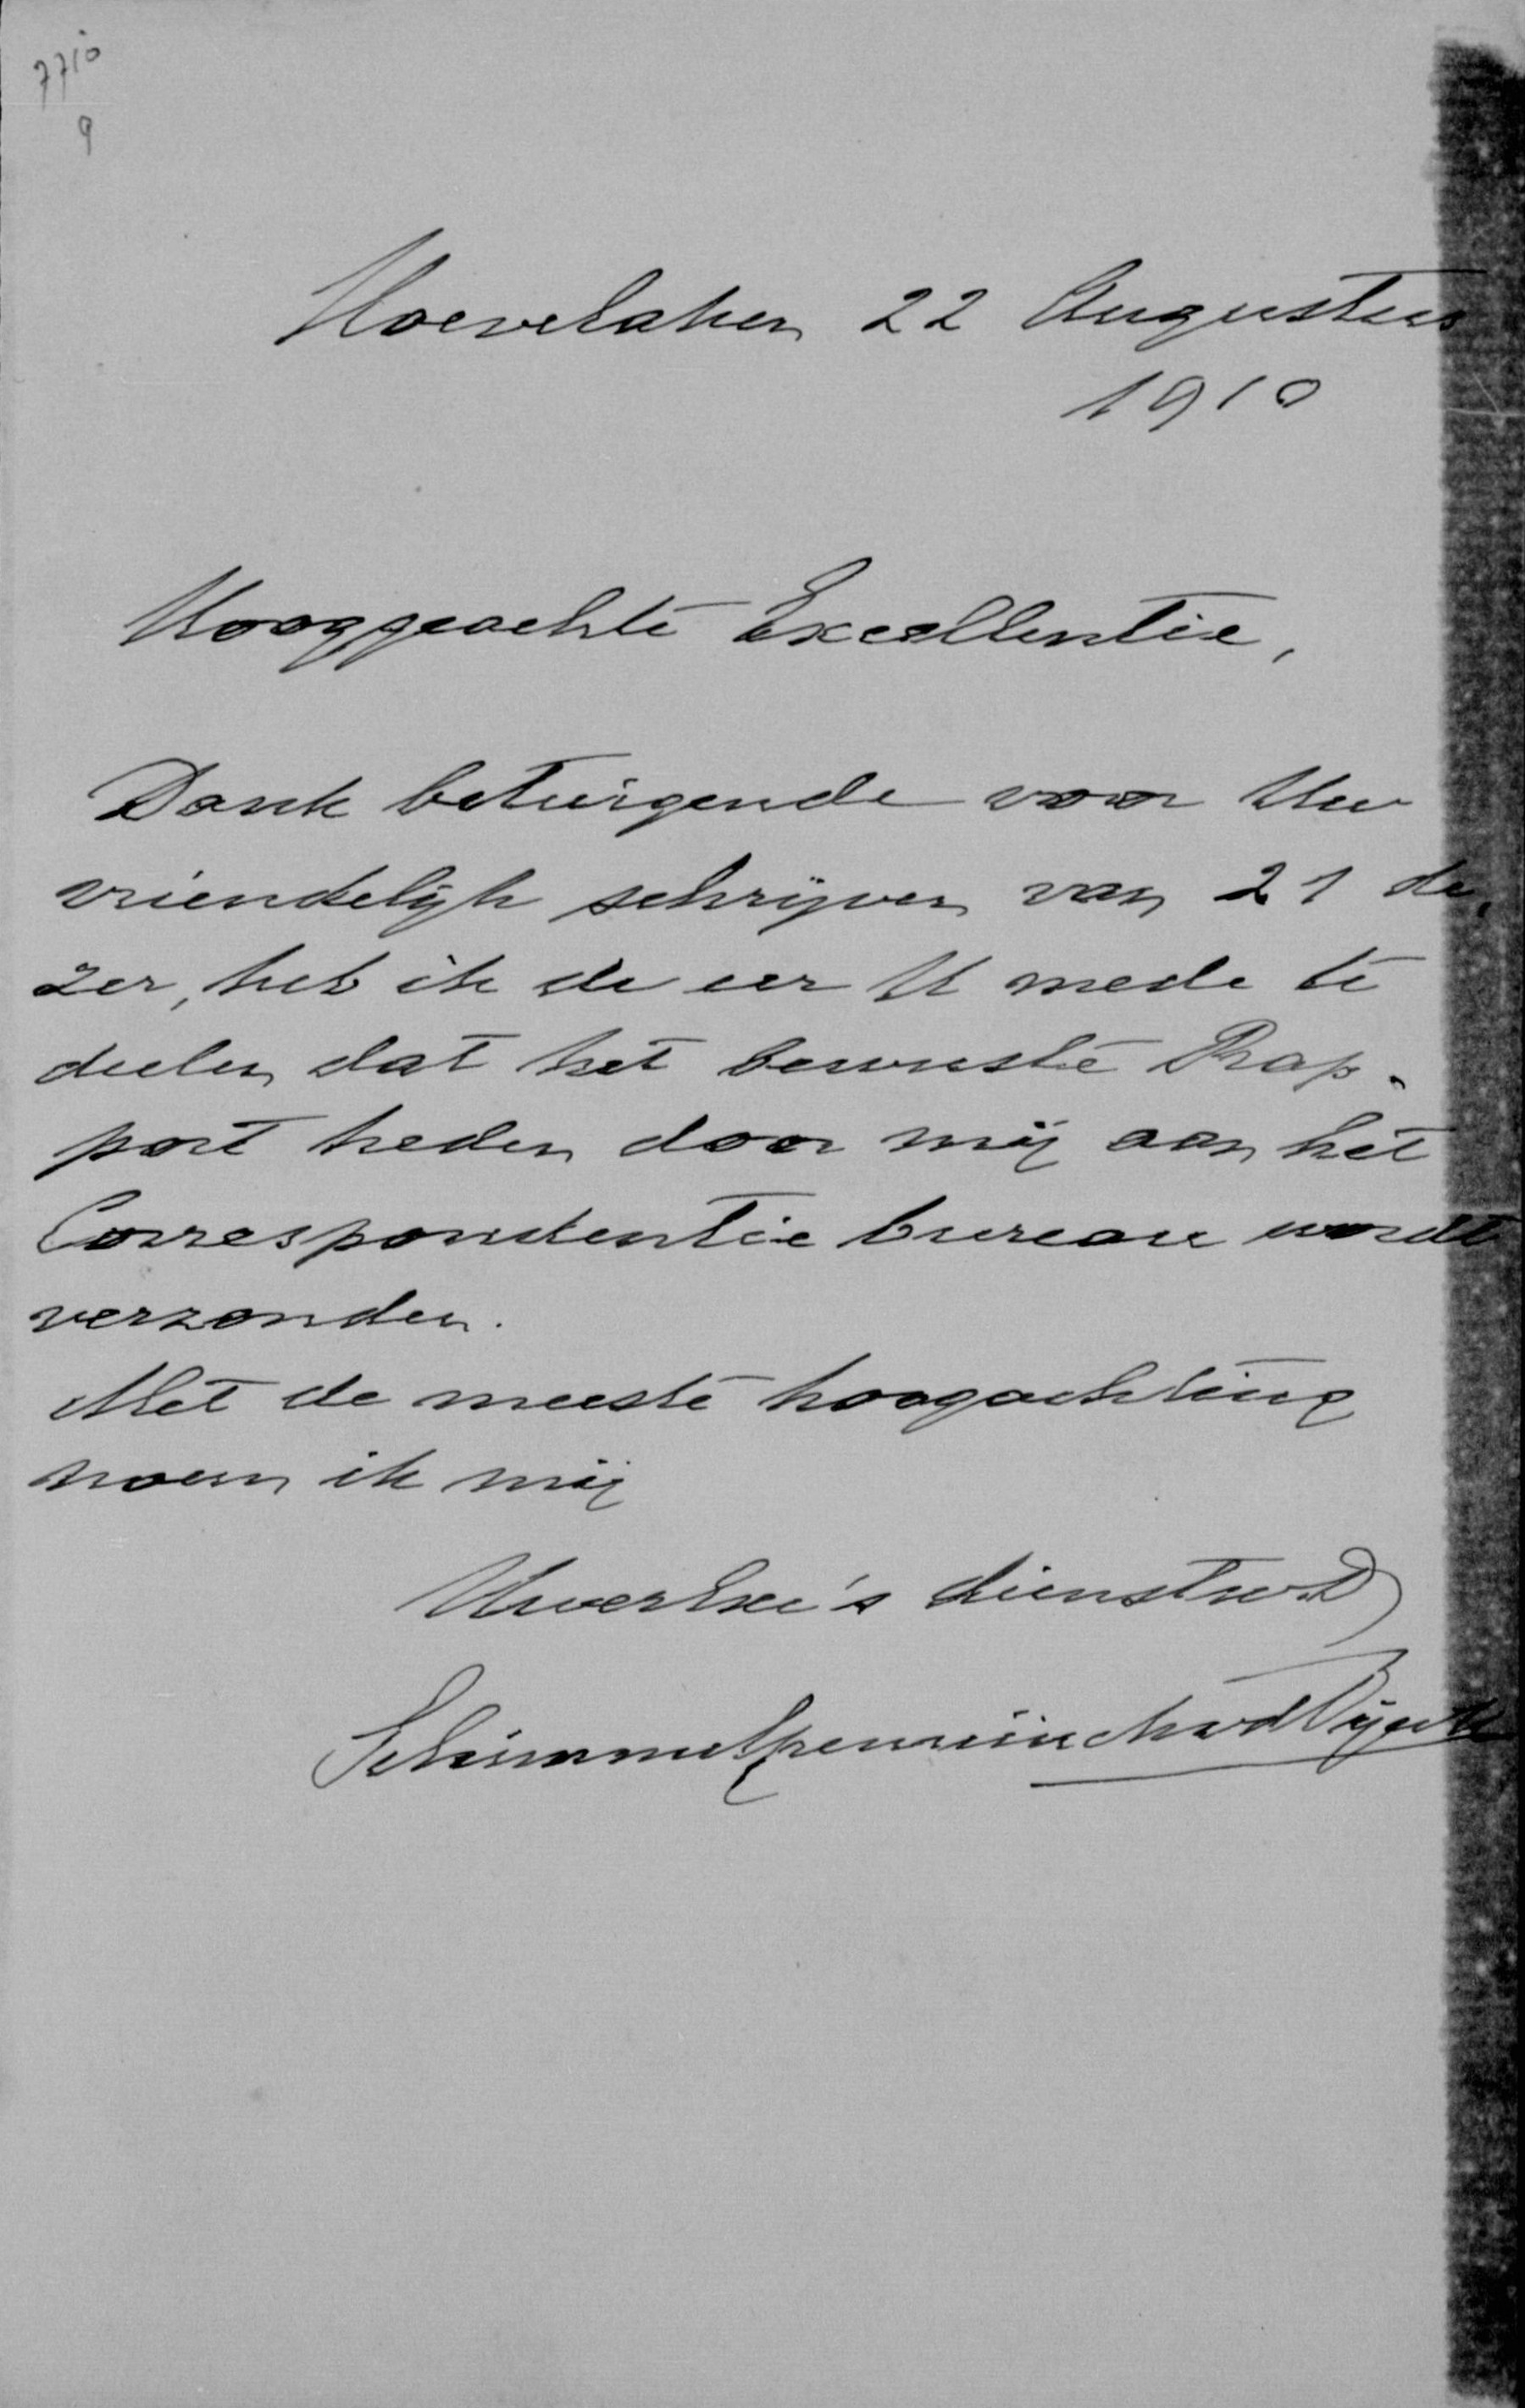 7710
9
Hoevelaken 22 Augustus
1910
Hooggeachte Excellentie,
Dank betuigende voor Uw
vriendelijk schrijven van 21 de,
zer, heb ik de eer U mede te
deelen dat het bewuste Rap-
port heden door mij aan het
Correspondentie bureau wordt
verzonden.
Met de meeste hoogachting
noem ik mij
UwerExc's dienstw.D
Schimmelpenninck vd Oije